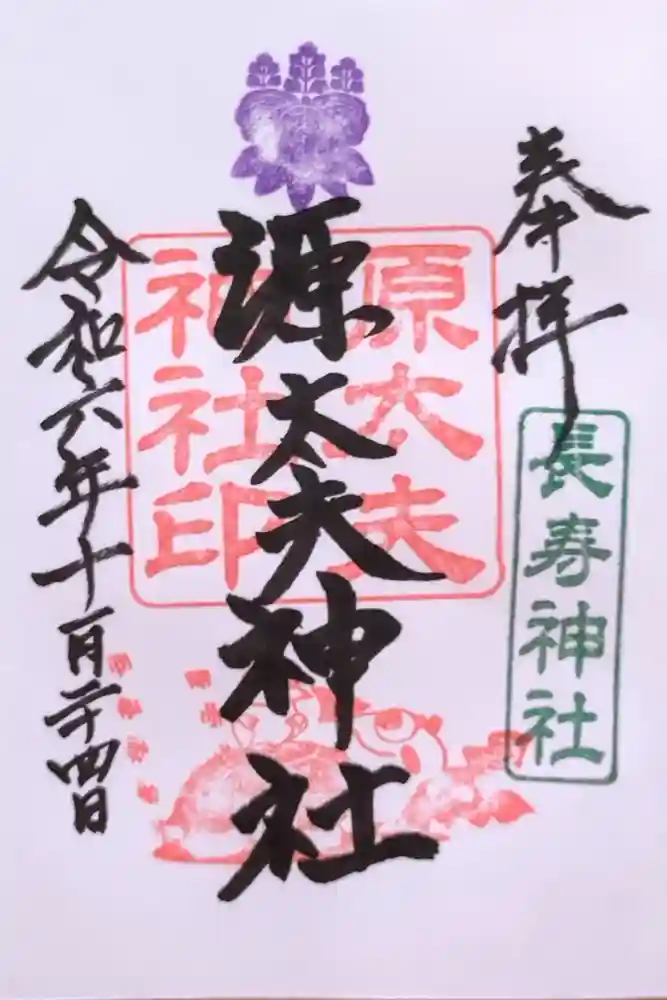 奉拝
長寿神社
原太夫
神社印
源太夫神社
令和六年十一月二十四日